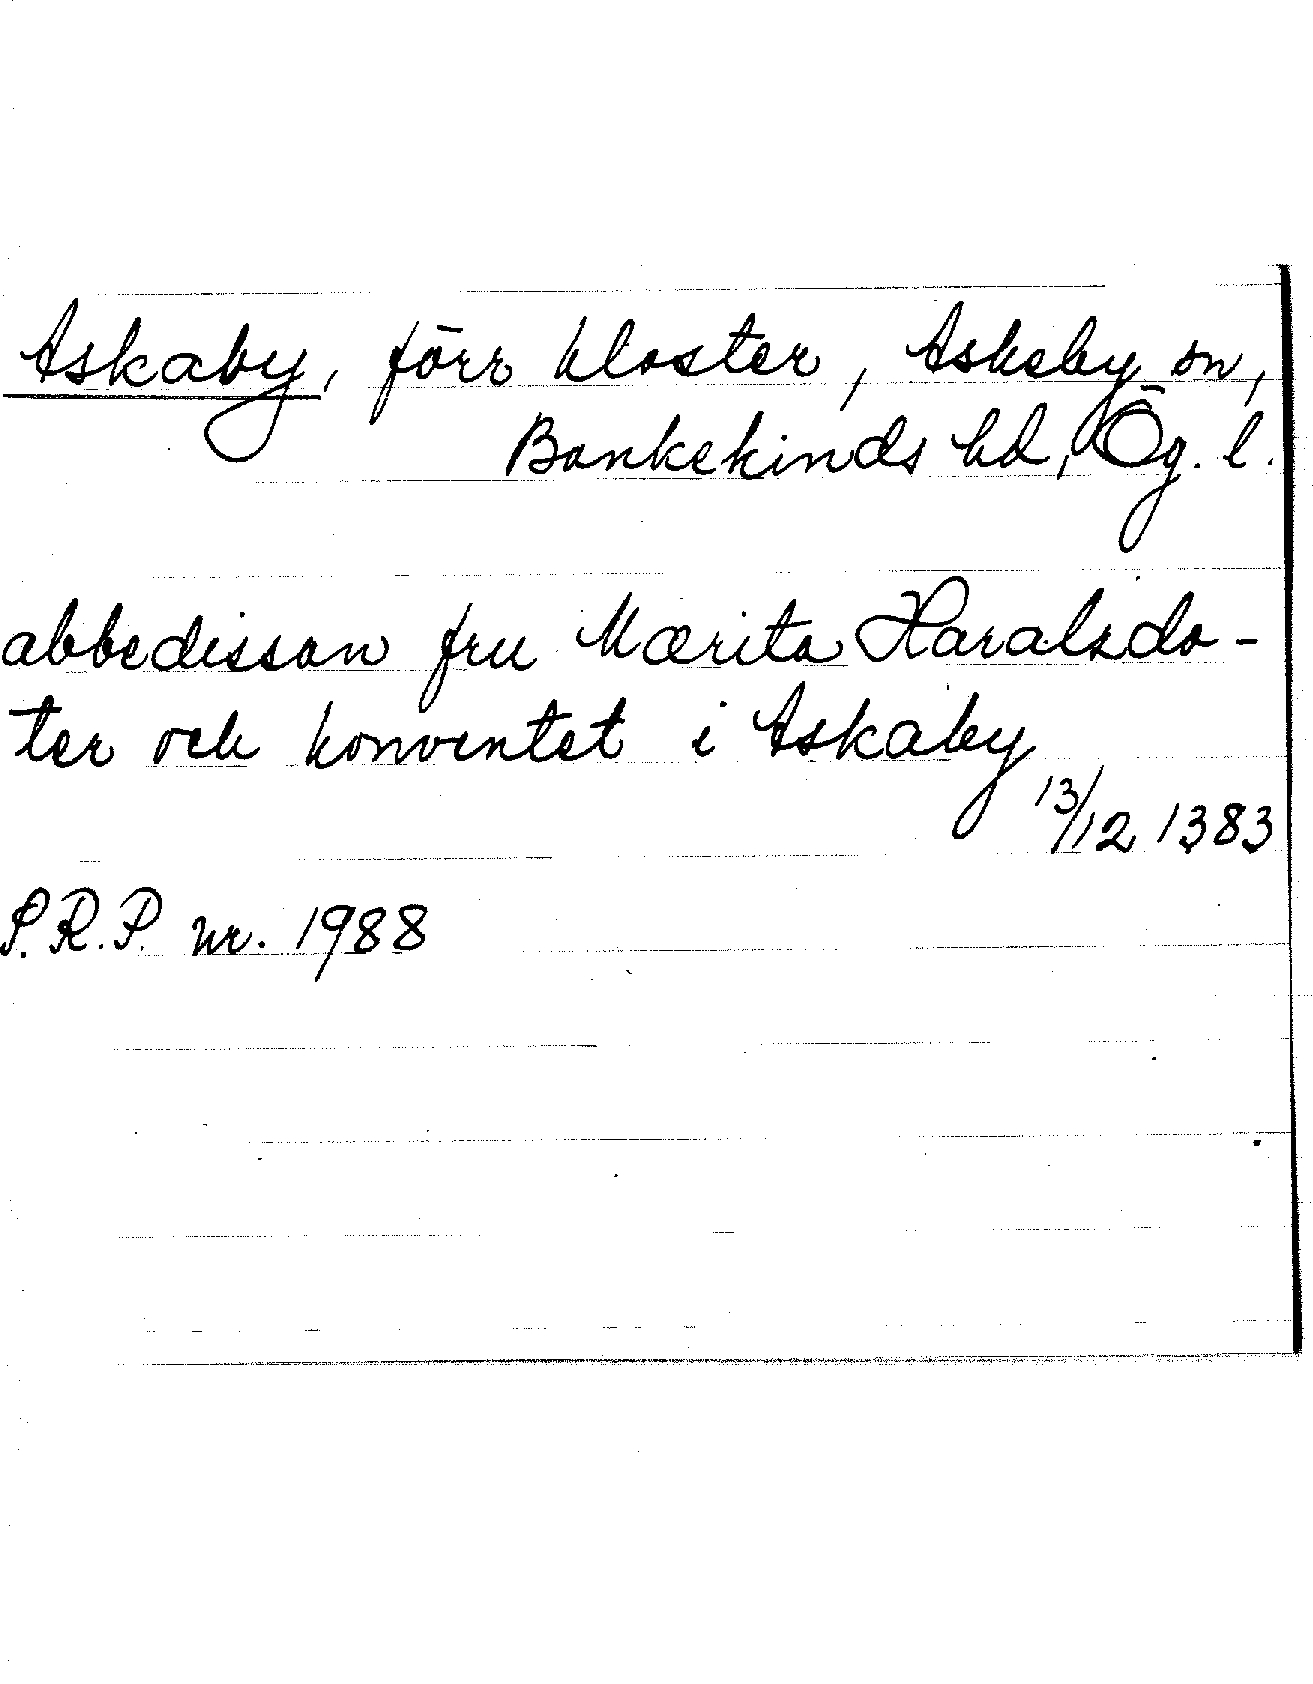 Askaby, förr kloster, Askeby sn,
Bankekinds hd, Ög. l.
abbedissan fru Mærita Haralsdo-
ter och konventet i Askaby
13/12 1383
S.R.P. nr. 1988